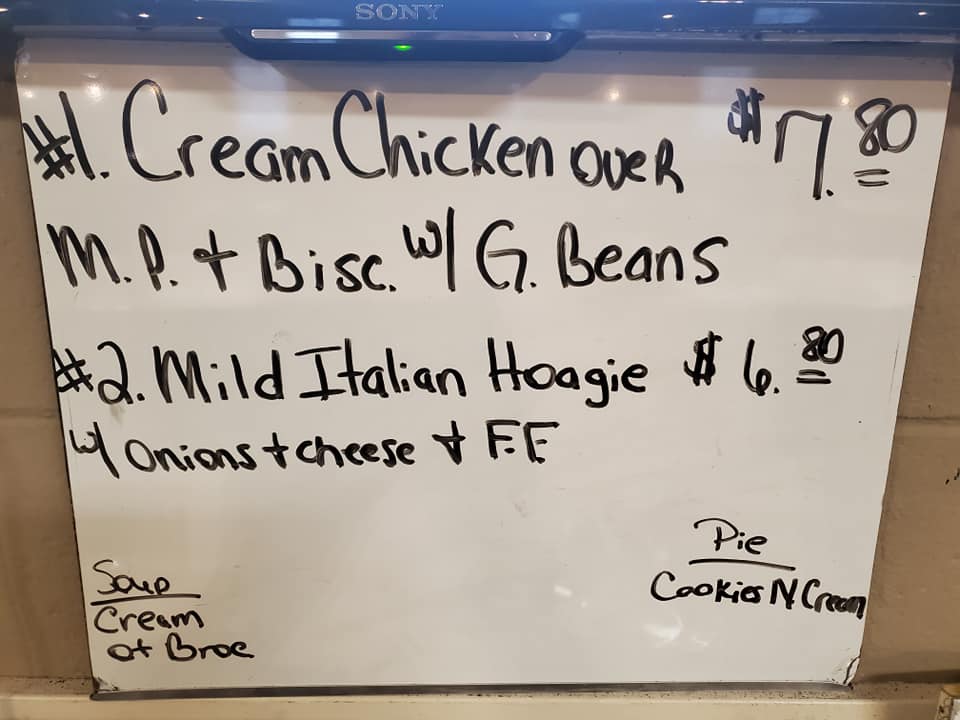 SONY
#1. Cream Chicken over $7.80
M.P. + Bisc. w/ G. Beans
#2. Mild Italian Hoagie $6.80
w/ Onions + cheese + F.F
Soup
Cream
of Broc
Pie
Cookies N Cream